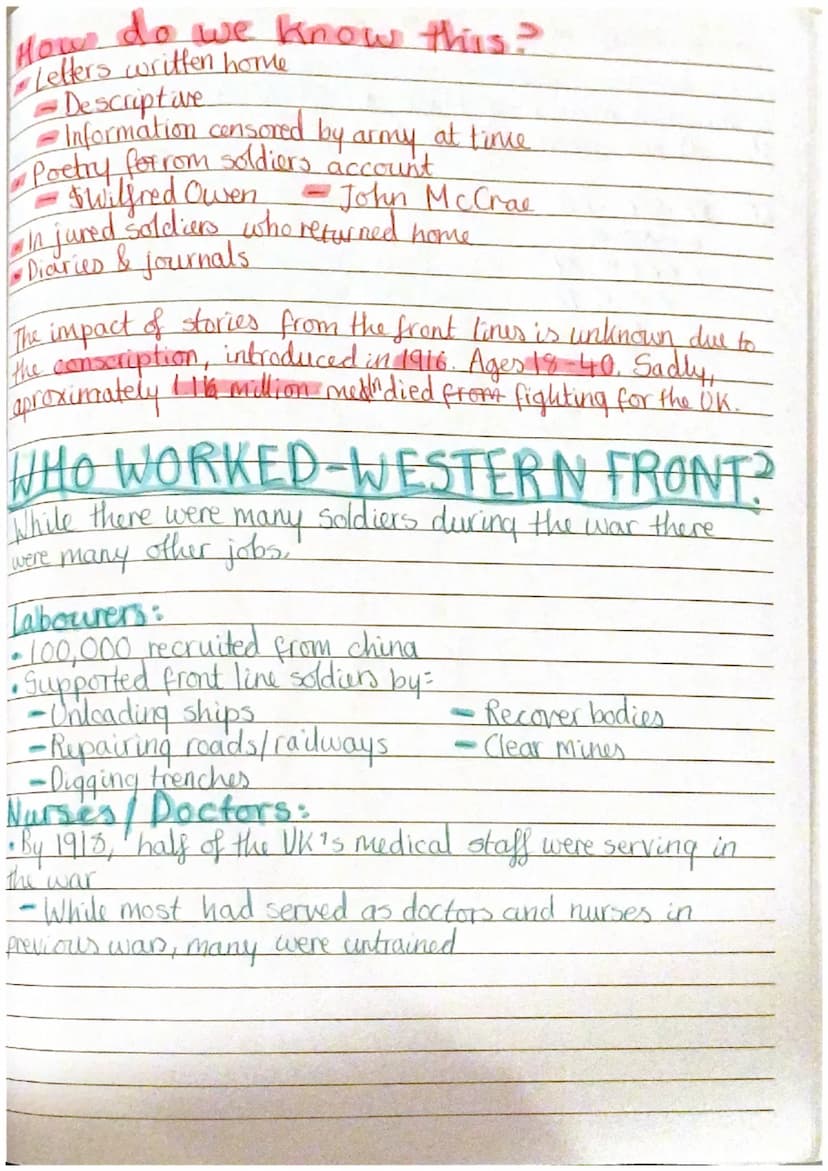 How do we know this?
- Letters written home
- Descriptive
- Information censored by army at time
- Poetry from soldiers account
- Wilfred Owen - John McCrae
- Injured soldiers who returned home
- Diaries & journals
The impact of stories from the front lines is unknown due to
the conscription, introduced in 1916. Ages 18-40. Sadly,
aproximately million men died from fighting for the UK.
WHO WORKED-WESTERN FRONT?
While there were many soldiers during the war there
were many other jobs.
Labourers:
• 100,000 recruited from china
• Supported front line soldiers by:
- Unloading ships - Recover bodies
- Repairing roads/railways - Clear mines
- Digging trenches
Nurses/Doctors:
• By 1918, half of the UK's medical staff were serving in
the war
- While most had served as doctors and nurses in
previous wars, many were untrained